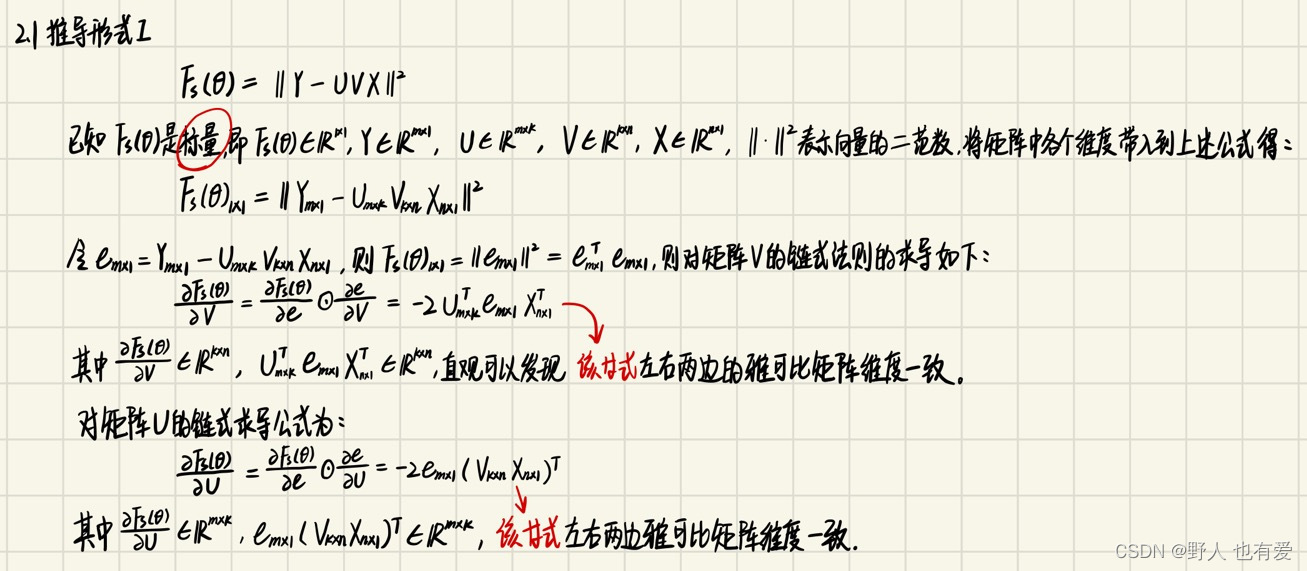 2.1 推导形式I
F₃(θ) = ‖Y - UVX‖²
已知 F₃(θ)是标量,即 F₃(θ)∈ℝ¹ˣ¹, Y∈ℝᵐˣ¹, U∈ℝᵐˣᵏ, V∈ℝᵏˣⁿ, X∈ℝⁿˣ¹, ‖·‖²表示向量的二范数,将矩阵中各个维度带入到上述公式得:
F₃(θ)₁ₓ₁ = ‖Yₘₓ₁ - Uₘₓₖ Vₖₓₙ Xₙₓ₁‖²
令 eₘₓ₁ = Yₘₓ₁ - Uₘₓₖ Vₖₓₙ Xₙₓ₁, 则 F₃(θ)₁ₓ₁ = ‖eₘₓ₁‖² = eᵀₘₓ₁ eₘₓ₁, 则对矩阵V的链式法则的求导如下:
∂F₃(θ)/∂V = ∂F₃(θ)/∂e ⊙ ∂e/∂V = -2 Uᵀₘₓₖ eₘₓ₁ Xᵀₙₓ₁
其中 ∂F₃(θ)/∂V ∈ℝᵏˣⁿ, Uᵀₘₓₖ eₘₓ₁ Xᵀₙₓ₁ ∈ℝᵏˣⁿ, 直观可以发现 该公式左右两边的雅可比矩阵维度一致。
对矩阵U的链式求导公式为:
∂F₃(θ)/∂U = ∂F₃(θ)/∂e ⊙ ∂e/∂U = -2eₘₓ₁(Vₖₓₙ Xₙₓ₁)ᵀ
其中 ∂F₃(θ)/∂U ∈ℝᵐˣᵏ, eₘₓ₁(Vₖₓₙ Xₙₓ₁)ᵀ∈ℝᵐˣᵏ, 该公式左右两边雅可比矩阵维度一致.
CSDN @野人 也有爱